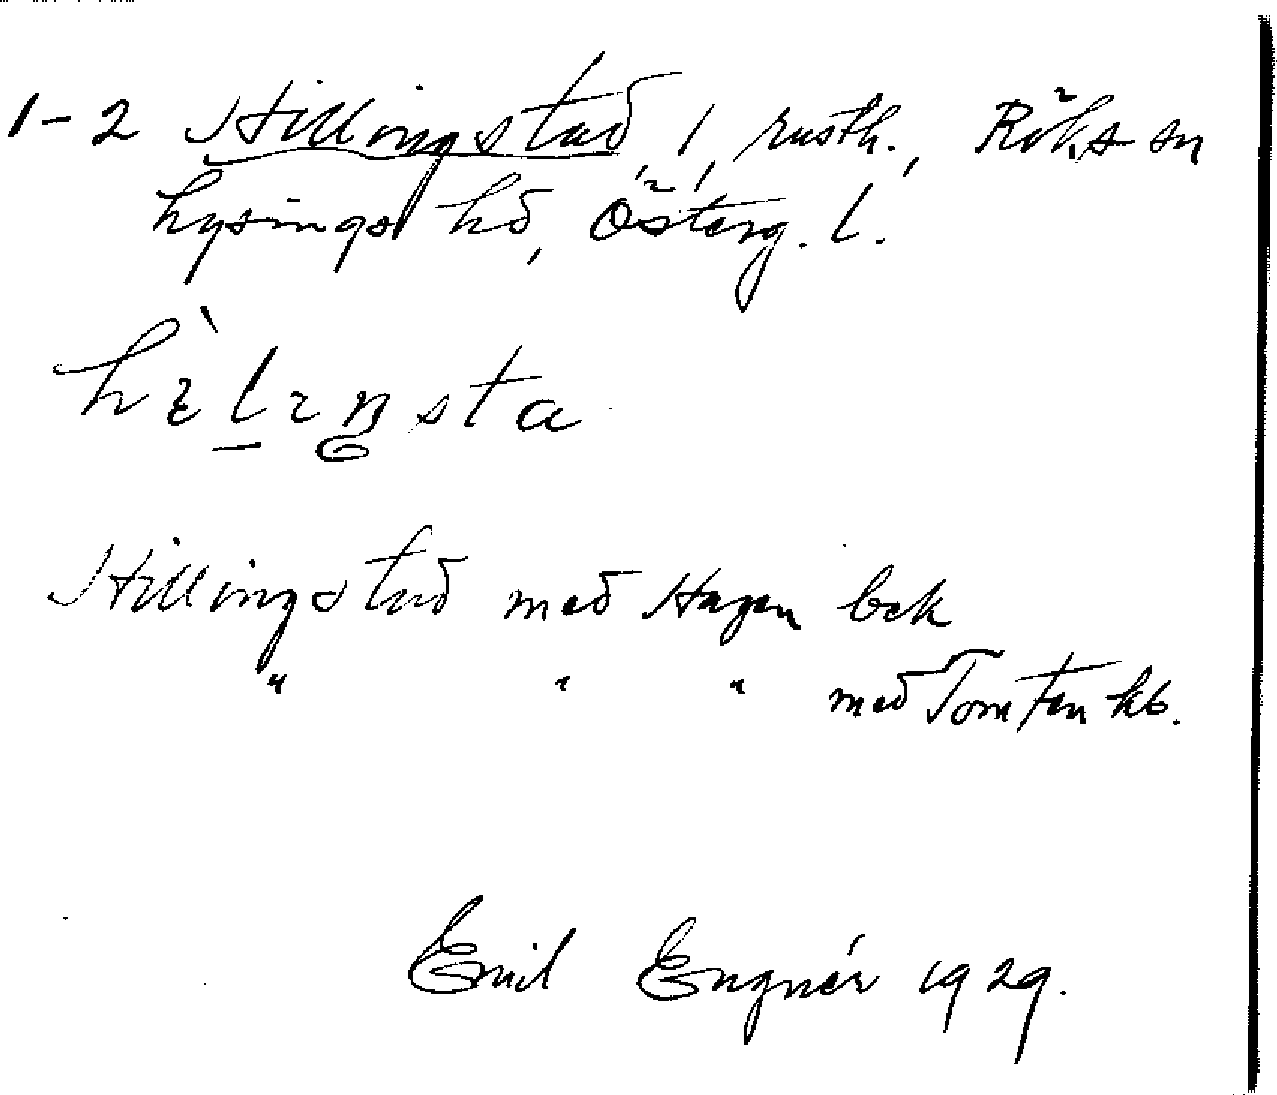 1-2 Hillingstad, 1, rusth., Röks sn
Lysings hd, Österg. l.
Hillingstad med Hagen bek
" " " med Tomten kb.
Emil Engnér 1929.